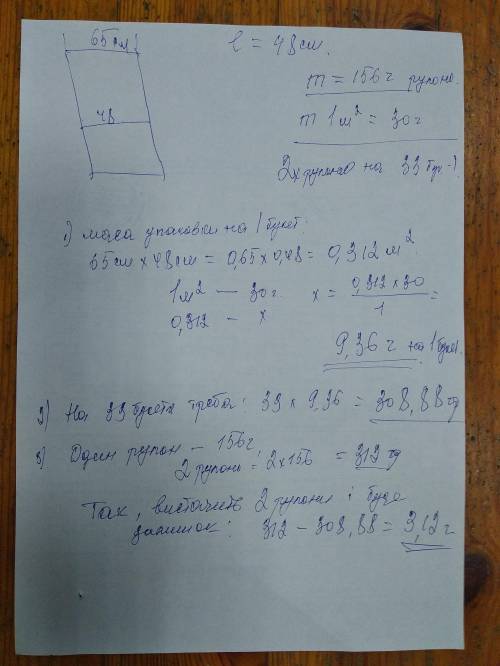 65см
l = 48см.
m = 156г рулоне.
48
m 1м² = 30г
2х рулонів на 33 бук-?
1) маса упаковки на 1 букет:
65см × 48см = 0,65 × 0,48 = 0,312 м²
1м² — 30г.
x = 0,312 × 30 / 1 =
0,312 — x
9,36 г на 1 букет.
2) На 33 букета треба: 33 × 9,36 = 308,88 гр
3) Один рулон — 156г,
2 рулони: 2×156 = 312 гр
Так, вистачить 2 рулони і буде
залишок: 312 − 308,88 = 3,12 г